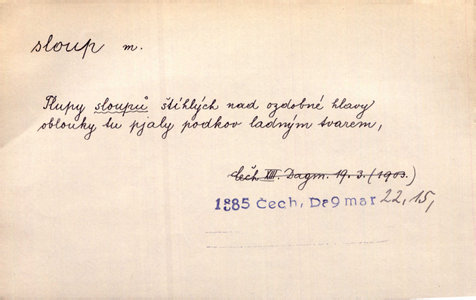 sloup m.
Tlupy sloupů štíhlých nad ozdobné hlavy
oblouky tu pjaly podkov ladným tvarem,
Čech XIII. Dagm. 19. 3. (1903.)
1885 Čech, Dagmar 22, 15,